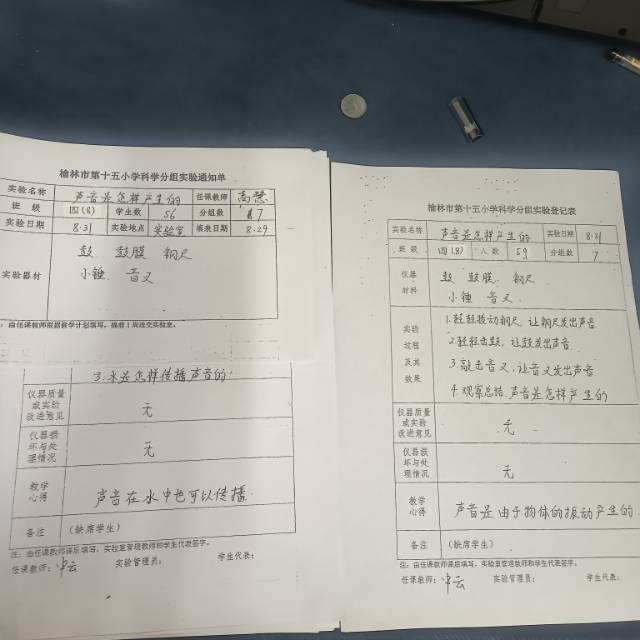 榆林市第十五小学科学分组实验通知单
实验名称 声音是怎样产生的 任课教师 高慧
班 级 四(8) 学生数 56 分组数 7
实验日期 8.31 实验地点 实验室 填表日期 8.29
实验器材
鼓 鼓膜 钢尺
小锤 音叉
：由任课教师根据教学计划填写，提前1周送交实验室。
3.水是怎样传播声音的
仪器质量
或实验
改进意见
无
仪器损
坏与处
理情况
无
教学
心得
声音在水中也可以传播
备注 (缺席学生)
注：由任课教师课后填写，实验室管理教师和学生代表签字。
任课教师： 实验管理员： 学生代表：
榆林市第十五小学科学分组实验登记表
实验名称 声音是怎样产生的 实验日期 8.31
班 级 四(8) 人 数 59 分组数 7
仪器
材料
鼓 鼓膜 钢尺
小锤 音叉
实验
过程
及其
效果
1.轻轻拨动钢尺,让钢尺发出声音
2.轻轻击鼓,让鼓发出声音
3.敲击音叉,让音叉发出声音
4.观察总结,声音是怎样产生的
仪器质量
或实验
改进意见
无
仪器损
坏与处
理情况
无
教学
心得
声音是由于物体的振动产生的.
备注 (缺席学生)
注：由任课教师课后填写，实验室管理教师和学生代表签字。
任课教师： 实验管理员： 学生代表：